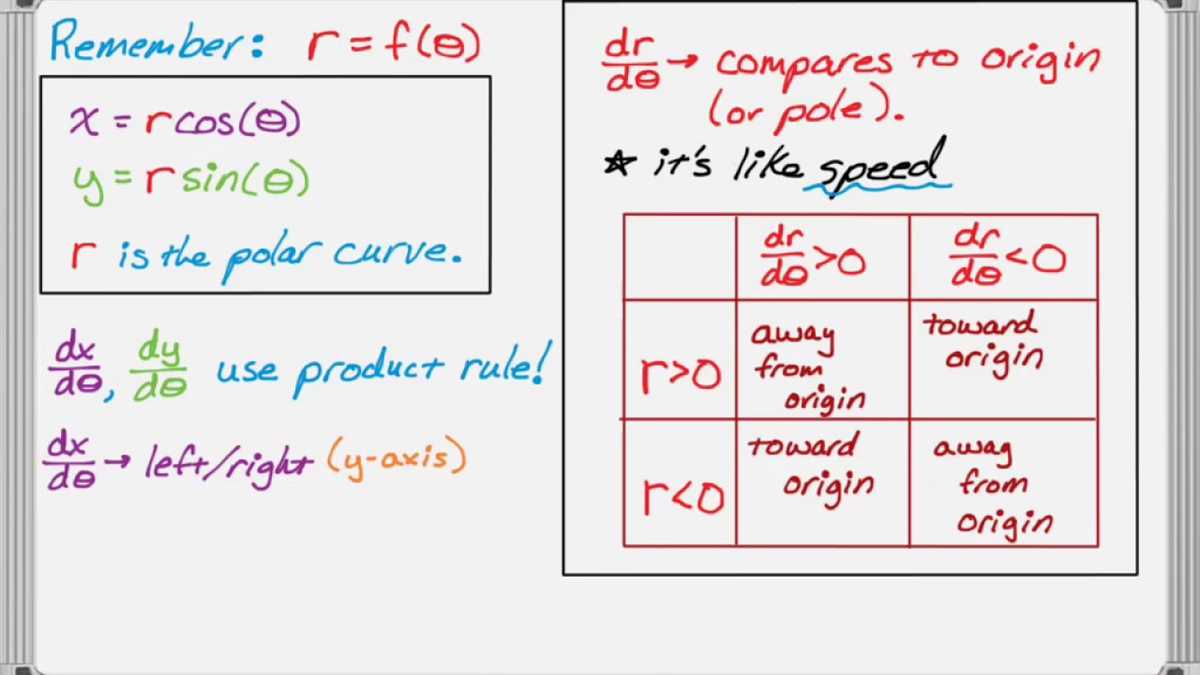 Remember: r = f(θ)
x = r cos(θ)
y = r sin(θ)
r is the polar curve.
dx/dθ, dy/dθ use product rule!
dx/dθ → left/right (y-axis)
dr/dθ → compares to origin
(or pole).
★ it's like speed
dr/dθ >0 dr/dθ <0
r>0 away from origin toward origin
r<0 toward origin away from origin